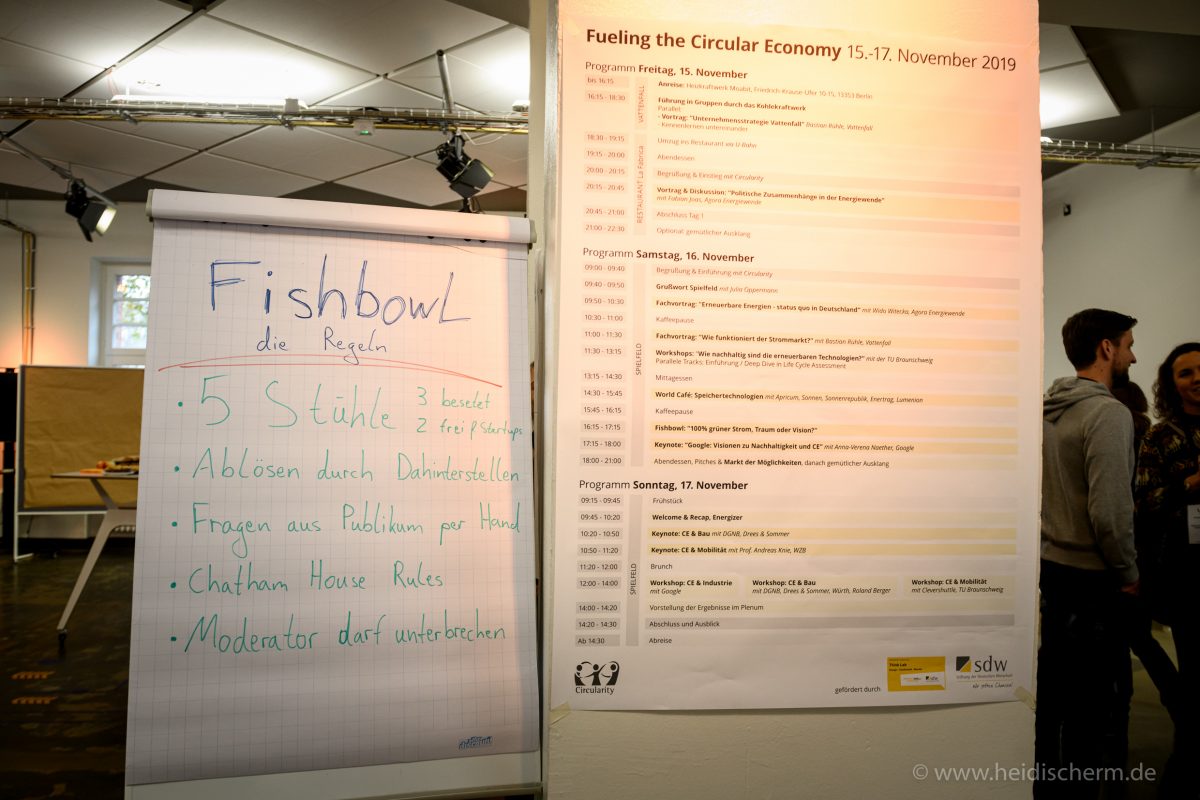 Fishbowl
die Regeln
• 5 Stühle 3 besetzt
2 frei f Startups
• Ablösen durch Dahinterstellen
• Fragen aus Publikum per Hand
• Chatham House Rules
• Moderator darf unterbrechen
Fueling the Circular Economy 15.-17. November 2019
Programm Freitag, 15. November
VATTENFALL
bis 16:15 Anreise: Heizkraftwerk Moabit, Friedrich-Krause-Ufer 10-15, 13353 Berlin
16:15 - 18:30 Führung in Gruppen durch das Kohlekraftwerk
Parallel:
- Vortrag: "Unternehmensstrategie Vattenfall" Bastian Rühle, Vattenfall
- Kennenlernen untereinander
RESTAURANT La Fabrica
18:30 - 19:15 Umzug ins Restaurant via U-Bahn
19:15 - 20:00 Abendessen
20:00 - 20:15 Begrüßung & Einstieg mit Circularity
20:15 - 20:45 Vortrag & Diskussion: "Politische Zusammenhänge in der Energiewende"
mit Fabian Joas, Agora Energiewende
20:45 - 21:00 Abschluss Tag 1
21:00 - 22:30 Optional: gemütlicher Ausklang
Programm Samstag, 16. November
SPIELFELD
09:00 - 09:40 Begrüßung & Einführung mit Circularity
09:40 - 09:50 Grußwort Spielfeld mit Julia Oppermann
09:50 - 10:30 Fachvortrag: "Erneuerbare Energien - status quo in Deutschland" mit Wido Witecka, Agora Energiewende
10:30 - 11:00 Kaffeepause
11:00 - 11:30 Fachvortrag: "Wie funktioniert der Strommarkt?" mit Bastian Rühle, Vattenfall
11:30 - 13:15 Workshops: "Wie nachhaltig sind die erneuerbaren Technologien?" mit der TU Braunschweig
Parallele Tracks: Einführung / Deep Dive in Life Cycle Assessment
13:15 - 14:30 Mittagessen
14:30 - 15:45 World Café: Speichertechnologien mit Apricum, Sonnen, Sonnenrepublik, Enertrag, Lumenion
15:45 - 16:15 Kaffeepause
16:15 - 17:15 Fishbowl: "100% grüner Strom, Traum oder Vision?"
17:15 - 18:00 Keynote: "Google: Visionen zu Nachhaltigkeit und CE" mit Anna-Verena Naether, Google
18:00 - 21:00 Abendessen, Pitches & Markt der Möglichkeiten, danach gemütlicher Ausklang
Programm Sonntag, 17. November
SPIELFELD
09:15 - 09:45 Frühstück
09:45 - 10:20 Welcome & Recap, Energizer
10:20 - 10:50 Keynote: CE & Bau mit DGNB, Drees & Sommer
10:50 - 11:20 Keynote: CE & Mobilität mit Prof. Andreas Knie, WZB
11:20 - 12:00 Brunch
12:00 - 14:00 Workshop: CE & Industrie Workshop: CE & Bau Workshop: CE & Mobilität
mit Google mit DGNB, Drees & Sommer, Würth, Roland Berger mit Clevershuttle, TU Braunschweig
14:00 - 14:20 Vorstellung der Ergebnisse im Plenum
14:20 - 14:30 Abschluss und Ausblick
Ab 14:30 Abreise
Circularity
gefördert durch
Think Lab
sdw
Stiftung der Deutschen Wirtschaft
Wir stiften Chancen!
© www.heidischerm.de